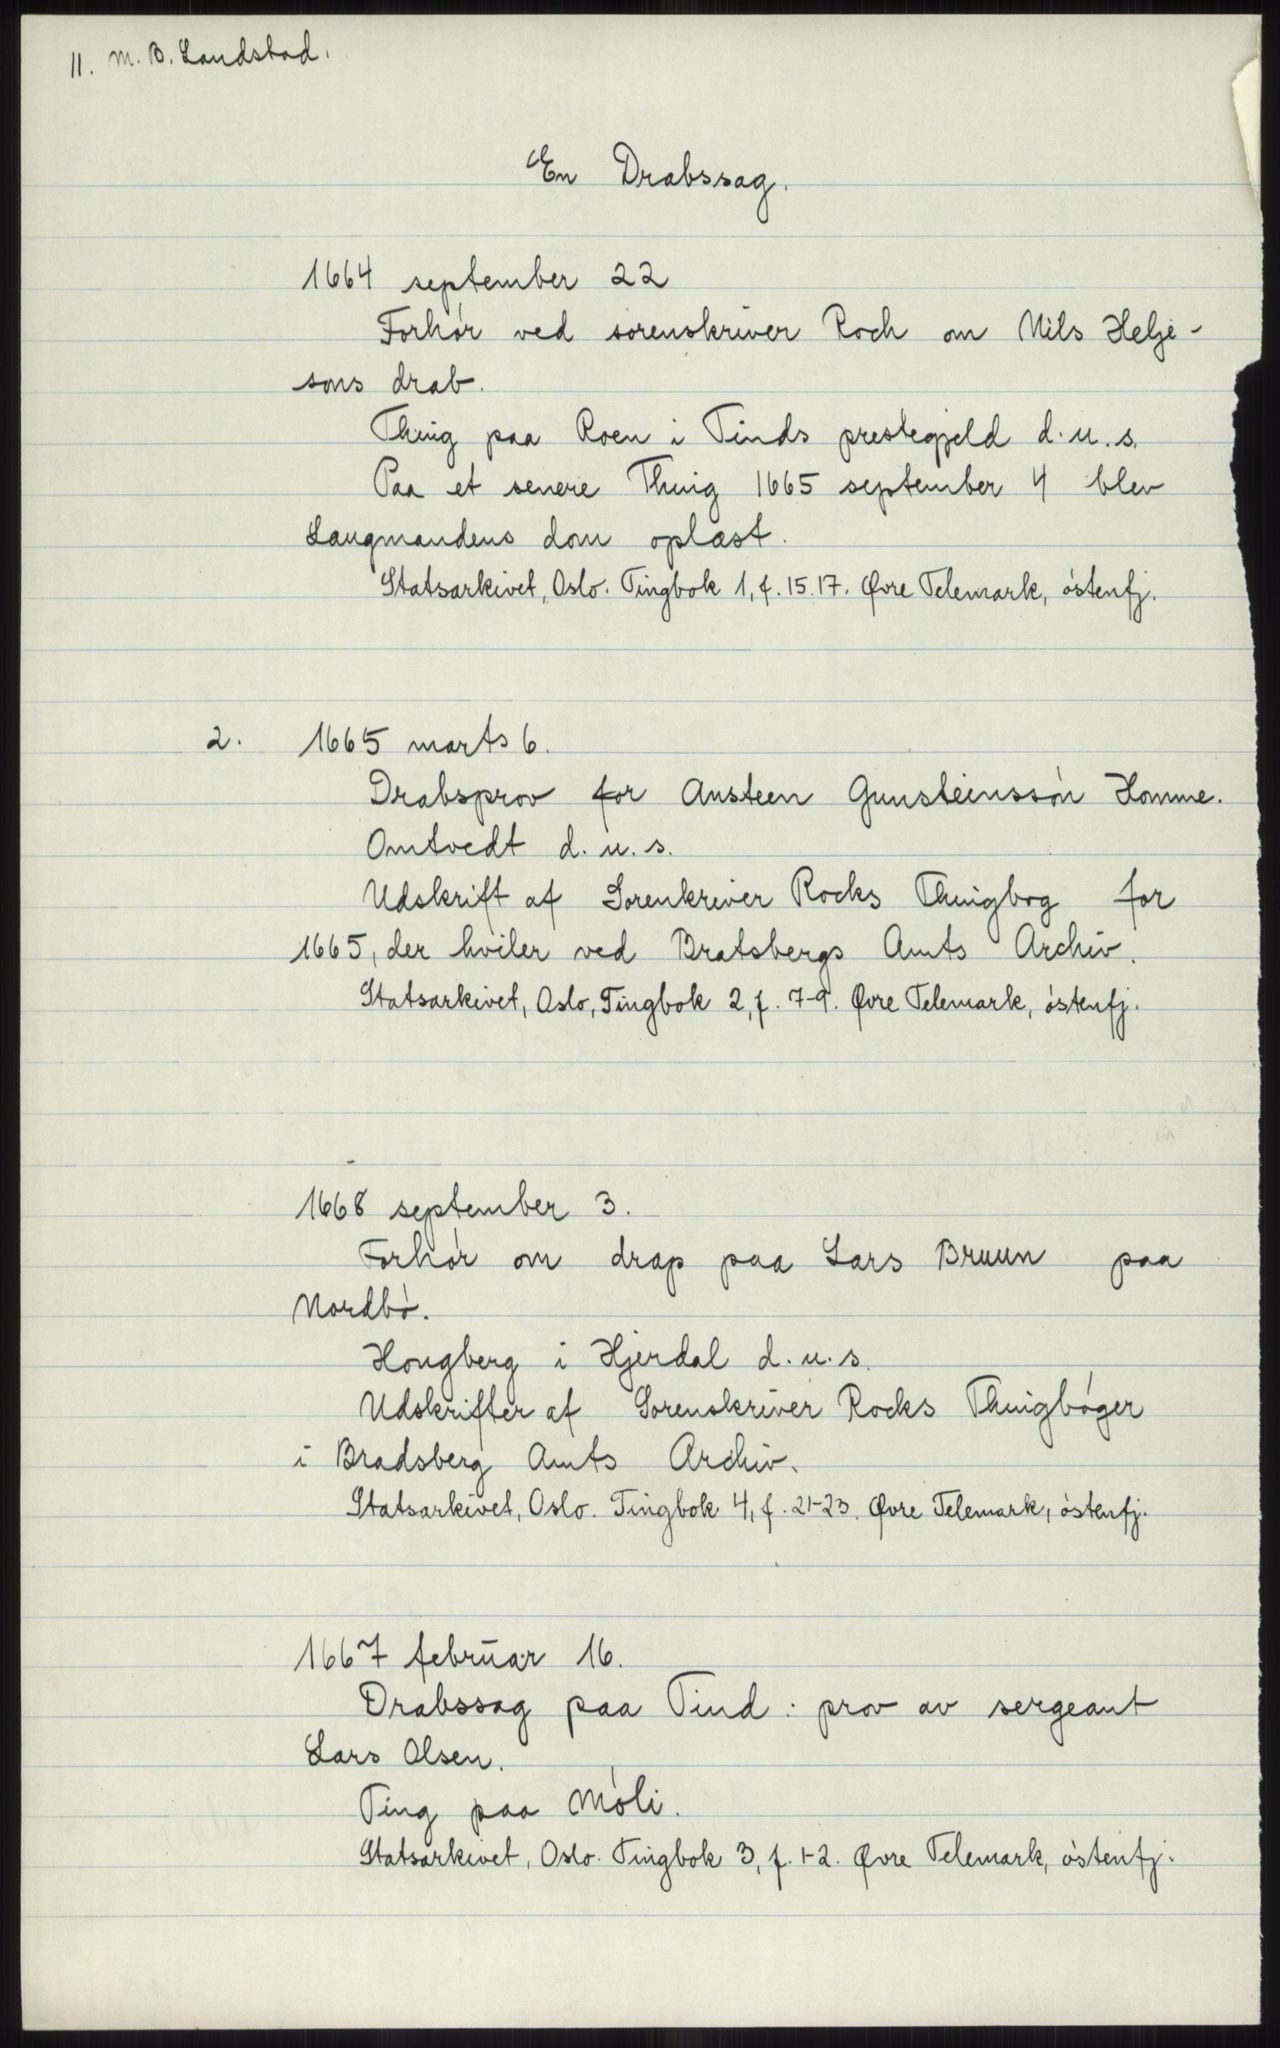 11. M. B. Landstad.
En Drabssag.
1664 september 22
Forhór ved sorenskriver Roch om Nils Helje-
sons drab.
Thing paa Roen i Tinds prestegjeld d. u. s.
Paa et senere Thing 1665 september 4 blev
Laugmandens dom oplæst.
Statsarkivet, Oslo. Tingbok 1, f. 15.17. Øvre Telemark, óstenfj.
2. 1665 marts 6.
Drabsprov for Austeen Gunsteinssón Homme.
Omtvedt d. u. s.
Udskrift af Sorenkriver Rocks Thingbog for
1665, der hviler ved Bratsbergs Amts Archiv.
Statsarkivet, Oslo, Tingbok 2, f. 7-9. Øvre Telemark, óstenfj.
1668 september 3.
Forhór om drap paa Lars Bruun paa
Nordbó.
Hougberg i Hjerdal d. u. s.
Udskrifter af Sorenskriver Rocks Thingbóger
i Bradsberg Amts Archiv.
Statsarkivet, Oslo. Tingbok 4, f. 21-23. Øvre Telemark, óstenfj.
1667 februar 16.
Drabssag paa Tind: prov av sergeant
Lars Olsen.
Ting paa Móli.
Statsarkivet, Oslo. Tingbok 3, f. 1-2. Øvre Telemark, óstenfj.